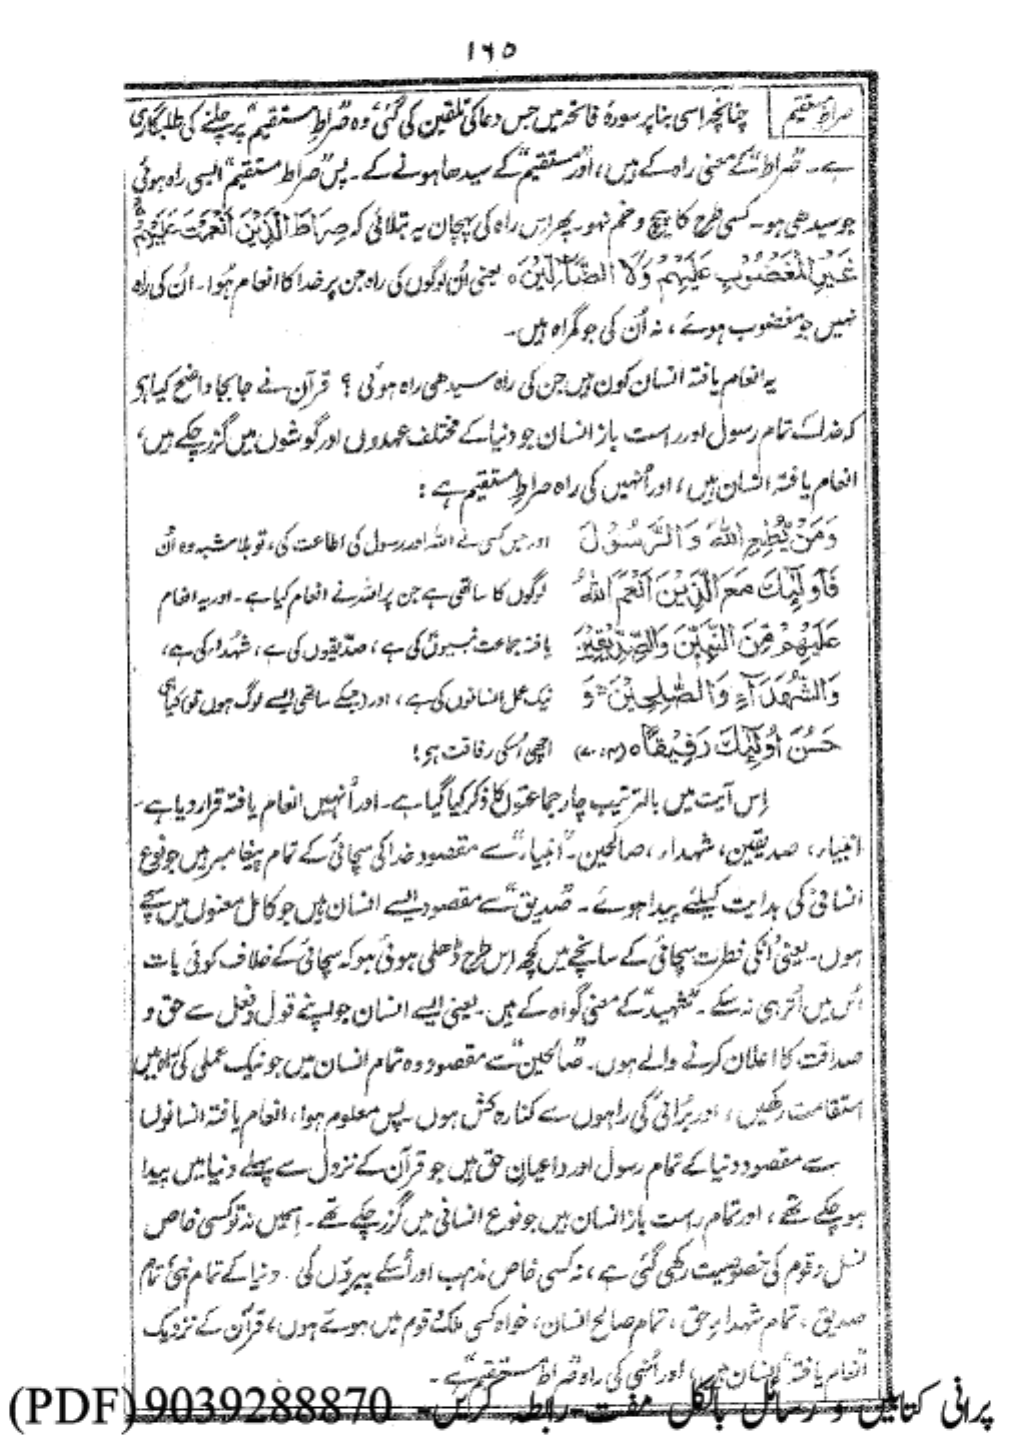 ۱۶۵
صراطِ مستقیم
چنانچہ اسی بنا پر سورۂ فاتحہ میں جس دعا کی تلقین کی گئی وہ "صراطِ مستقیم" پر چلنے کی طلبگاری
ہے۔ "صراط" کے معنی راہ کے ہیں، اور "مستقیم" کے سیدھا ہونے کے۔ پس "صراط مستقیم" ایسی راہ ہوئی
جو سیدھی ہو۔ کسی طرح کا پیچ و خم نہو۔ پھر اس راہ کی پہچان یہ بتلائی کہ صِرَاطَ الَّذِیْنَ اَنْعَمْتَ عَلَیْہِمْ
غَیْرِ الْمَغْضُوْبِ عَلَیْہِمْ وَلَا الضَّآلِّیْنَ ہ یعنی اُن لوگوں کی راہ جن پر خدا کا انعام ہُوا۔ اُن کی راہ
نہیں جو مغضوب ہوئے، نہ اُن کی جو گمراہ ہیں۔
یہ انعام یافتہ انسان کون ہیں جن کی راہ سیدھی راہ ہوئی؟ قرآن نے جا بجا واضح کیا ہے
کہ خدا کے تمام رسول اور راست باز انسان جو دنیا کے مختلف عہدوں اور گوشوں میں گزر چکے ہیں،
انعام یافتہ انسان ہیں، اور اُنہیں کی راہ صراطِ مستقیم ہے:
وَمَنْ یُّطِعِ اللّٰہَ وَالرَّسُوْلَ اور جس کسی نے اللہ اور رسول کی اطاعت کی، تو بلا شبہ وہ اُن
فَاُولٰٓئِکَ مَعَ الَّذِیْنَ اَنْعَمَ اللّٰہُ لوگوں کا ساتھی ہے جن پر اللہ نے انعام کیا ہے۔ اور یہ انعام
عَلَیْہِمْ مِّنَ النَّبِیّٖنَ وَالصِّدِّیْقِیْنَ یافتہ جماعت نبیوں کی ہے، صدّیقوں کی ہے، شہداء کی ہے،
وَالشُّہَدَآءِ وَالصّٰلِحِیْنَ وَ نیک عمل انسانوں کی ہے، اور جسکے ساتھی ایسے لوگ ہوں تو کیا ہی
حَسُنَ اُولٰٓئِکَ رَفِیْقًا ہ (۴: ۷۰) اچھی اُسکی رفاقت ہے!
اِس آیت میں بالترتیب چار جماعتوں کا ذکر کیا گیا ہے۔ اور اُنہیں انعام یافتہ قرار دیا ہے۔
انبیاء، صدیقین، شہداء، صالحین۔ "انبیاء" سے مقصود خدا کی سچائی کے تمام پیغامبر ہیں جو نوع
انسانی کی ہدایت کیلئے پیدا ہوئے۔ "صدیق" سے مقصود ایسے انسان ہیں جو کامل معنوں میں سچے
ہوں۔ یعنی اُنکی فطرت سچائی کے سانچے میں کچھ اس طرح ڈھلی ہوئی ہو کہ سچائی کے خلاف کوئی بات
اُس میں اُتر ہی نہ سکے۔ "شہید" کے معنی گواہ کے ہیں۔ یعنی ایسے انسان جو اپنے قول و فعل سے حق و
صداقت کا اعلان کرنے والے ہوں۔ "صالحین" سے مقصود وہ تمام انسان ہیں جو نیک عملی کی راہ میں
استقامت رکھیں، اور برائی کی راہوں سے کنارہ کش ہوں۔ پس معلوم ہوا، انعام یافتہ انسانوں
سے مقصود دنیا کے تمام رسول اور داعیانِ حق ہیں جو قرآن کے نزول سے پہلے دنیا میں پیدا
ہو چکے تھے، اور تمام راست باز انسان ہیں جو نوع انسانی میں گزر چکے تھے۔ اِسمیں نہ تو کسی خاص
نسل و قوم کی خصوصیت رکھی گئی ہے، نہ کسی خاص مذہب اور اُسکے پیروؤں کی۔ دنیا کے تمام نبی، تمام
صدیق، تمام شہداءِ حق، تمام صالح انسان، خواہ کسی ملک و قوم میں ہوئے ہوں، قرآن کے نزدیک
"انعام یافتہ" انسان ہیں، اور اُنہی کی راہ "صراطِ مستقیم" ہے۔
پرانی کتابیں و رسائل بالکل مفت رابطہ کریں۔ 9039288870 (PDF)